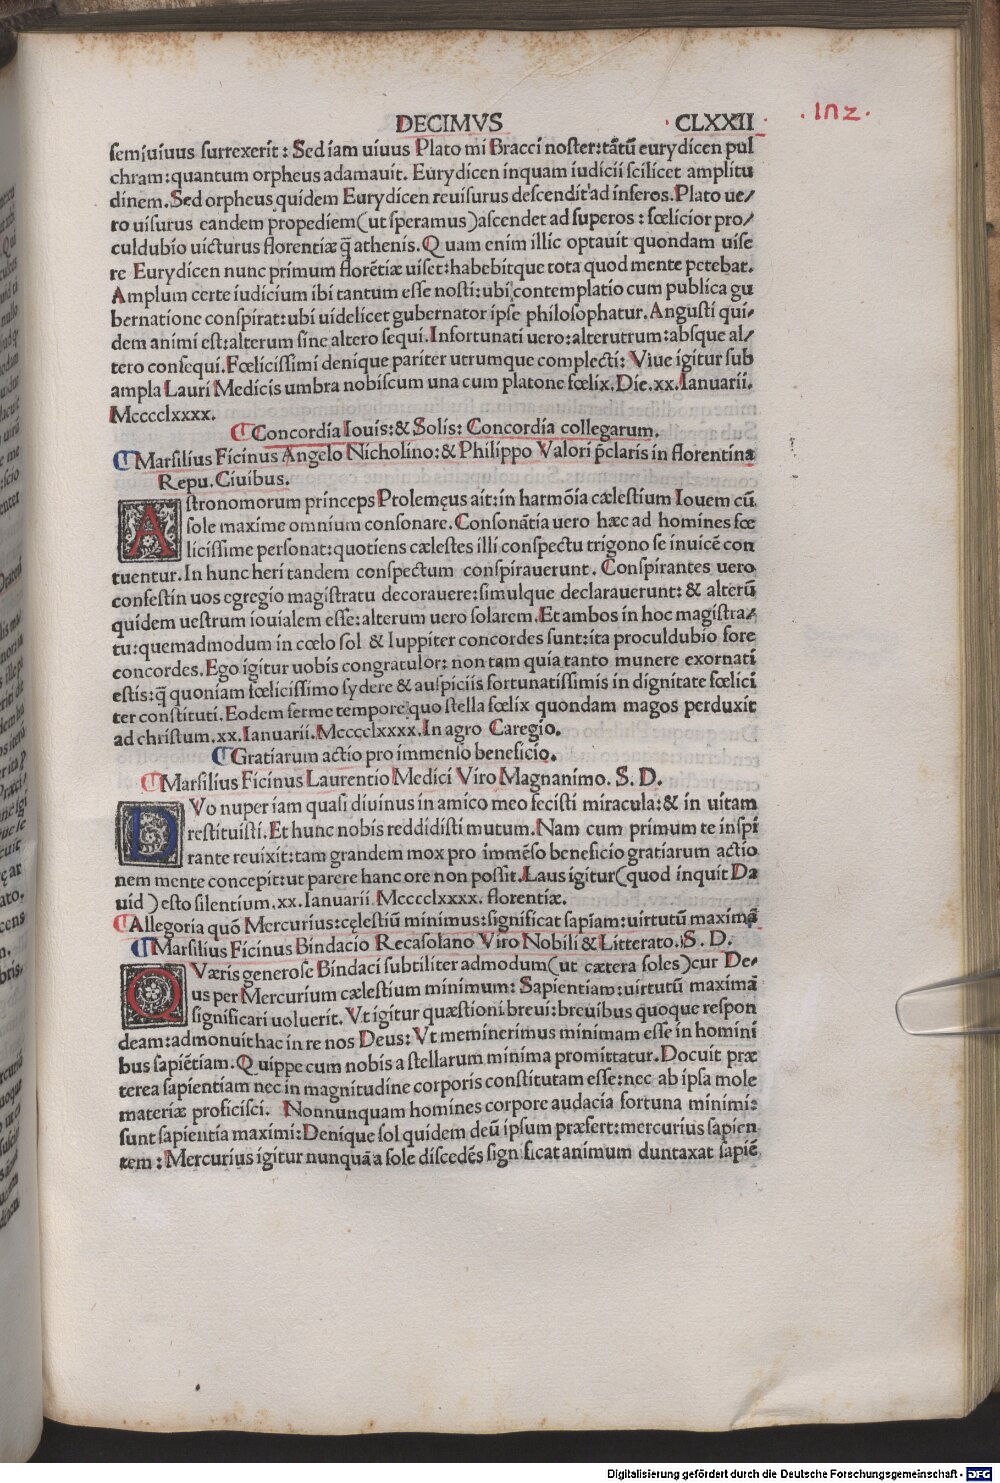 DECIMVS CLXXII
.172.
semiuiuus surrexerit: Sed iam uiuus Plato mi Bracci noster: tãtũ eurydicen pul
chram: quantum orpheus adamauit. Eurydicen inquam iudicii scilicet amplitu
dinem. Sed orpheus quidem Eurydicen reuisurus descendit ad inferos. Plato ue/
ro uisurus eandem propediem (ut speramus) ascendet ad superos: fœlicior pro/
culdubio uicturus florentiæ q̃ athenis. Quam enim illic optauit quondam uise
re Eurydicen nunc primum florẽtiæ uiset: habebitque tota quod mente petebat.
Amplum certe iudicium ibi tantum esse nosti: ubi contemplatio cum publica gu
bernatione conspirat: ubi uidelicet gubernator ipse philosophatur. Angusti qui/
dem animi est: alterum sine altero sequi. Infortunati uero: alterutrum: absque al/
tero consequi. Fœlicissimi denique pariter utrumque complecti: Viue igitur sub
ampla Lauri Medicis umbra nobiscum una cum platone fœlix. Die. xx. Ianuarii.
Mcccclxxxx.
¶Concordia Iouis: & Solis: Concordia collegarum.
¶Marsilius Ficinus Angelo Nicholino: & Philippo Valori p̃claris in florentina
Repu. Ciuibus.
Astronomorum princeps Ptolemęus ait: in harmõia cælestium Iouem cũ
sole maxime omnium consonare. Consonãtia uero hæc ad homines fœ
licissime personat: quotiens cælestes illi conspectu trigono se inuicẽ con
tuentur. In hunc heri tandem conspectum conspirauerunt. Conspirantes uero
confestin uos egregio magistratu decorauere: simulque declarauerunt: & alterũ
quidem uestrum iouialem esse: alterum uero solarem. Et ambos in hoc magistra/
tu: quemadmodum in cœlo sol & Iuppiter concordes sunt: ita proculdubio fore
concordes. Ego igitur uobis congratulor: non tam quia tanto munere exornati
estis: q̃ quoniam fœlicissimo sydere & auspiciis fortunatissimis in dignitate fœlici
ter constituti. Eodem ferme tempore quo stella fœlix quondam magos perduxit
ad christum. xx. Ianuarii. Mcccclxxxx. In agro Caregio.
¶Gratiarum actio pro immenso beneficio.
¶Marsilius Ficinus Laurentio Medici Viro Magnanimo. S. D.
DVo nuper iam quasi diuinus in amico meo fecisti miracula: & in uitam
restituisti. Et hunc nobis reddidisti mutum. Nam cum primum te inspi
rante reuixit: tam grandem mox pro immẽso beneficio gratiarum actio
nem mente concepit: ut parere hanc ore non possit. Laus igitur (quod inquit Da
uid) esto silentium. xx. Ianuarii. Mcccclxxxx. florentiæ.
¶Allegoria quõ Mercurius: cęlestiũ minimus: significat sapiam: uirtutũ maximã
¶Marsilius Ficinus Bindacio Recasolano Viro Nobili & Litterato. S. D.
QVæris generose Bindaci subtiliter admodum (ut cætera soles) cur De/
us per Mercurium cælestium minimum: Sapientiam: uirtutũ maximã
significari uoluerit. Vt igitur quæstioni breui: breuibus quoque respon
deam: admonuit hac in re nos Deus: Vt meminerimus minimam esse in homini
bus sapiẽtiam. Quippe cum nobis a stellarum minima promittatur. Docuit præ
terea sapientiam nec in magnitudine corporis constitutam esse: nec ab ipsa mole
materiæ proficisci. Nonnunquam homines corpore audacia fortuna minimi:
sunt sapientia maximi: Denique sol quidem deũ ipsum præfert: mercurius sapien
tem: Mercurius igitur nunquã a sole discedẽs significat animum duntaxat sapiẽ
Digitalisierung gefördert durch die Deutsche Forschungsgemeinschaft - DFG